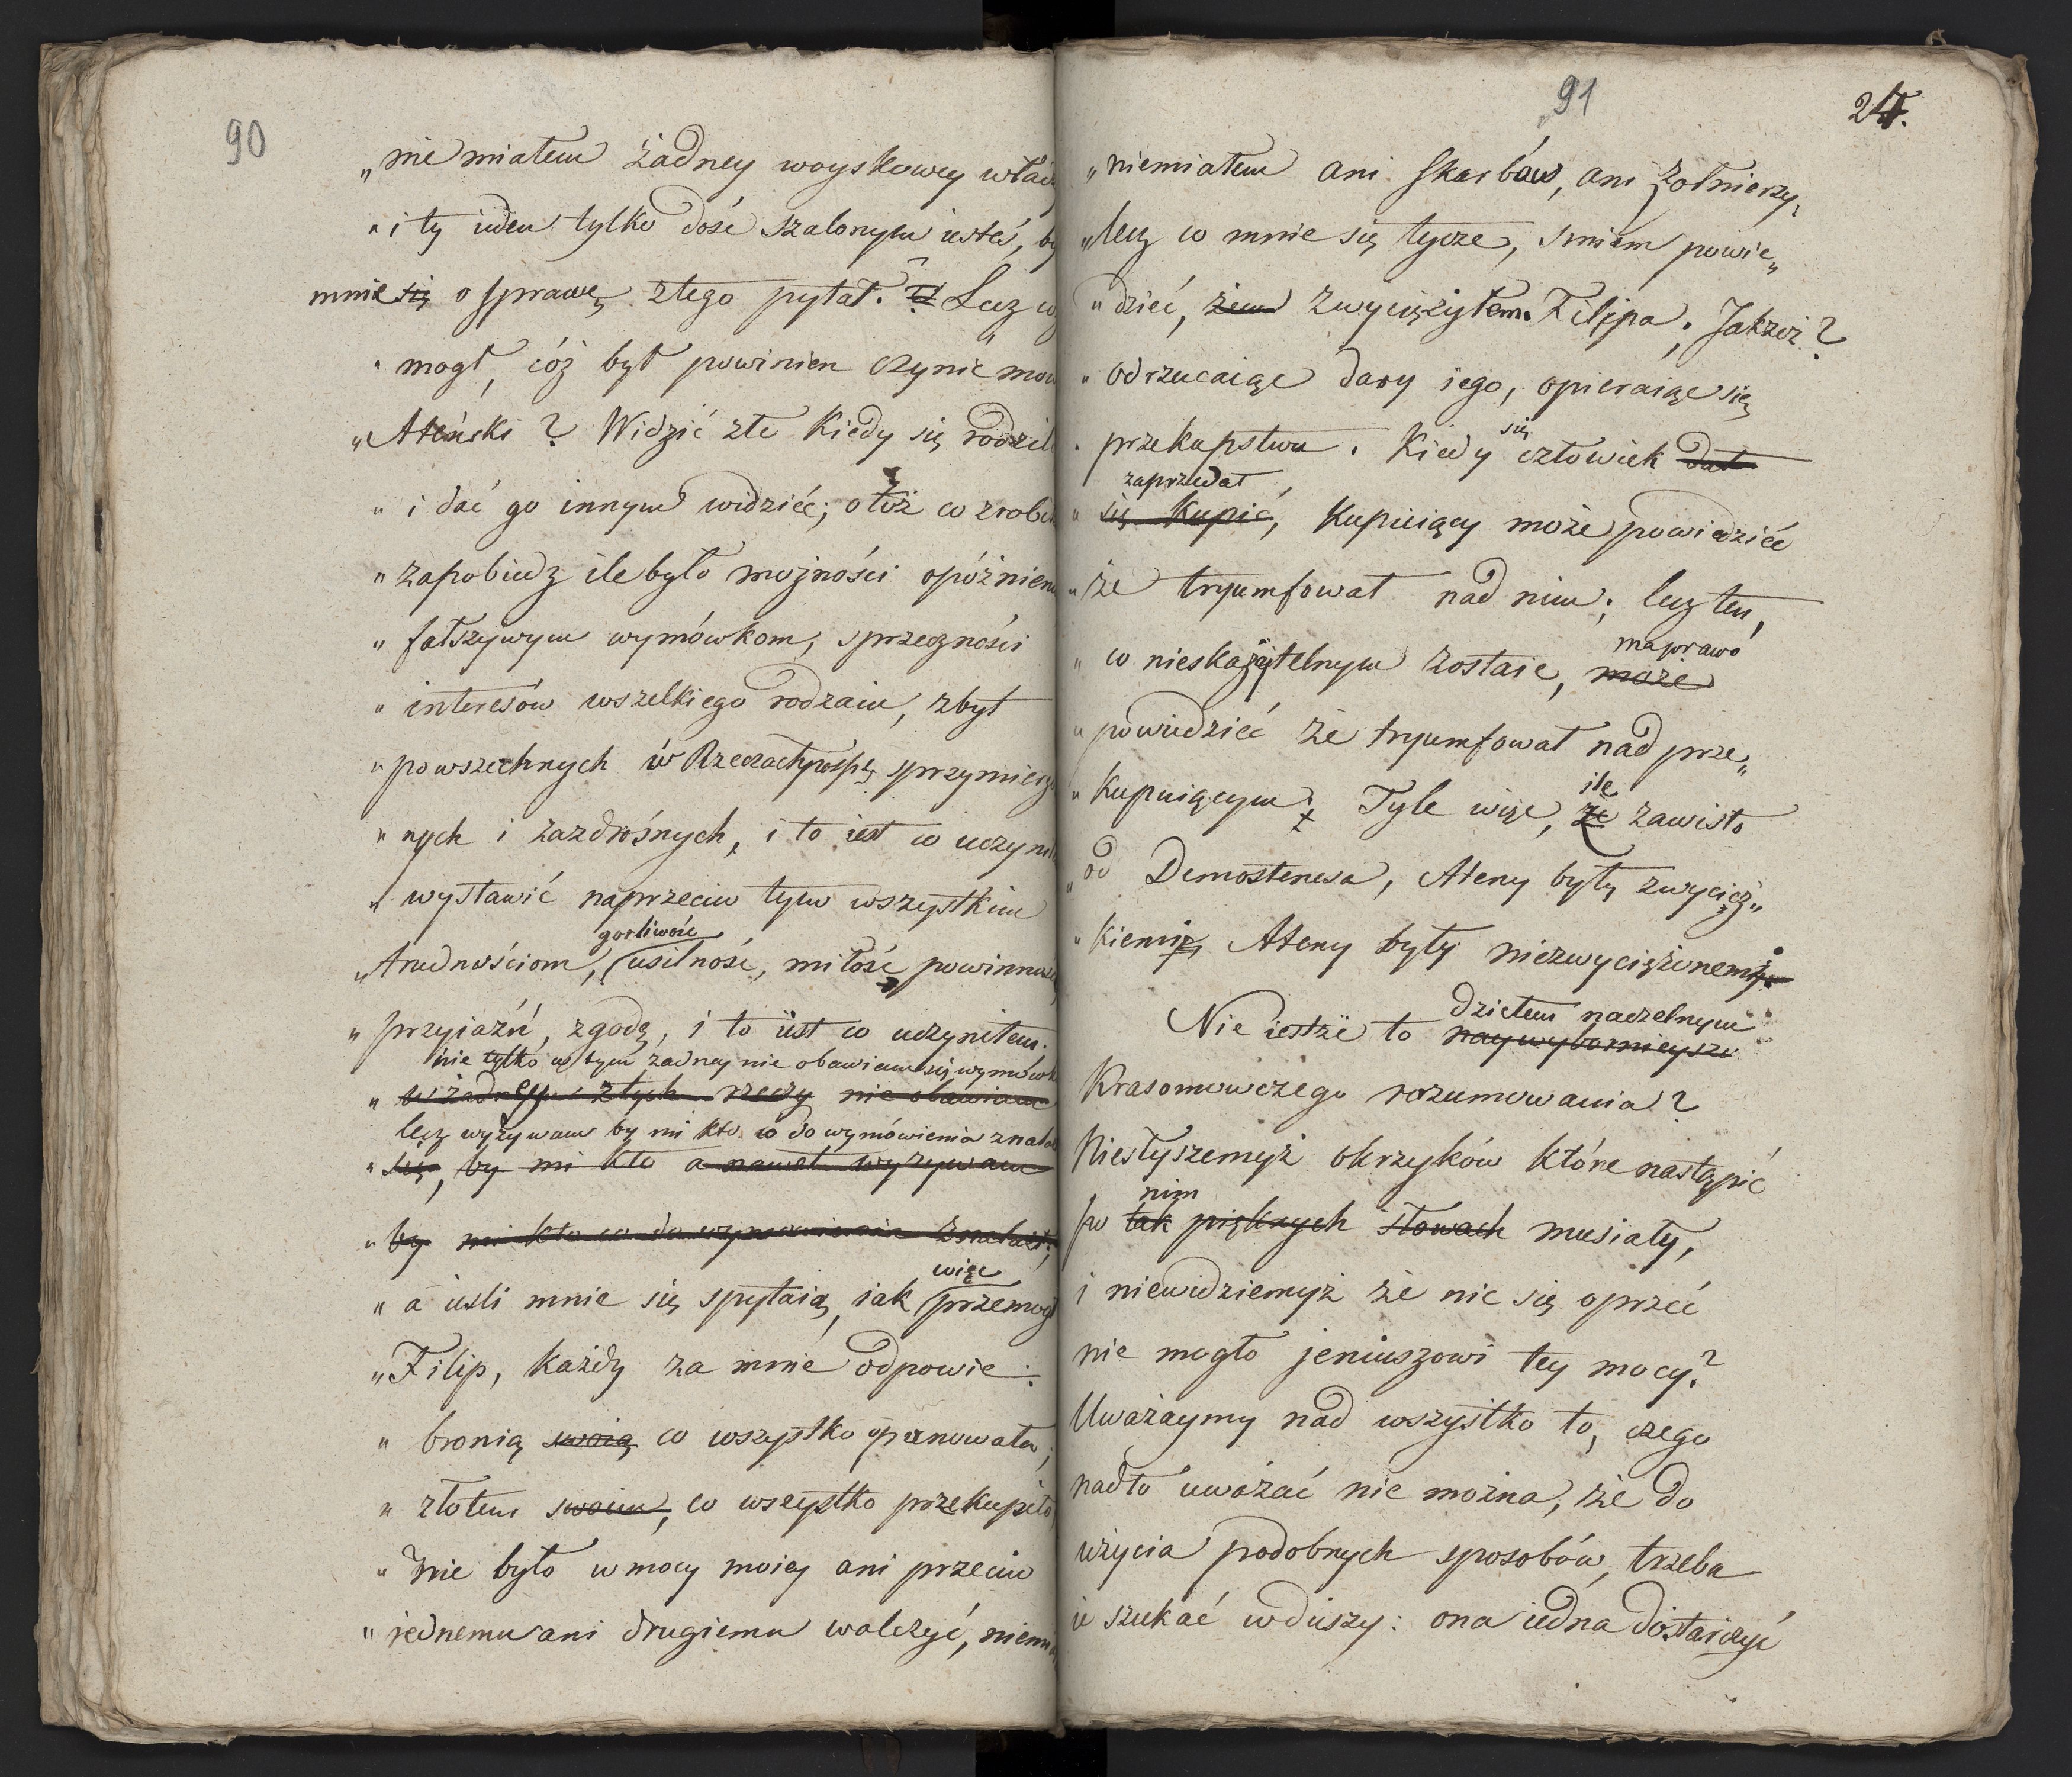 90
„nie miałem żadney woyskowey władz
„i ty ieden tylko dość szalonym iesteś, by
mnie się o sprawę złego pytał. Lecz
„mogł, cóż był powinien czynić mow
„Ateński? Widzić złe kiedy się rodził
„i dać go innym widzieć; otóż co zrobił
„zapobiedz ile było możności opóźnien
„fałszywym wymówkom, sprzeczności
„interesów wszelkiego rodzaiu, zbyt
„powszechnych w Rzeczachpospę sprzymierzo
„nych i zazdrośnych, i to iest co uczyni
„wystawić naprzeciw tym wszystkim
gorliwość
„trudnościom, usilność, miłość powinno
„przyiaźń, zgodę, i to iest co uczyniłem.
nie tylko w tym żadney nie obawiam się wymówk
„w żadney z tych rzeczy nie obawiam
lecz wyzywam by mi kto co do wymówienia znalaz
„się, by mi kto a nawet wyzywam
„by mi kto co do wymowienia znalazł;
więc
„a iezli mnie się spytaią, iak przemogł
„Filip, każdy za mnie odpowie:
„bronią swoią co wszystko opanowała;
„złotem swoim, co wszystko przekupiło
„Nie było w mocy moiey ani przeciw
„jednemu ani drugiemu walczyć, niem
91
24.
„niemiałem ani skarbów, ani żołnierzy,
„lecz co mnie się tycze, śmiem powie„
„dzieć, żem zwyciężyłem Filipa. Jakżeż?
„odrzucaiąc dary iego, opieraiąc się
się
„przekupstwu. Kiedy człowiek dał
zaprzedał
„się kupić, kupuiący może powiedzieć
„że tryumfował nad nim; lecz ten,
ma prawo
„co nieskazitelnym zostaie, może
„powiedzieć że tryumfował nad prze„
ile
„kupuiącym; Tyle więc, że zawisło
„od Demostenesa, Ateny były zwycięz„
„kiemi, Ateny były niezwyciężonemi.
dziełem naczelnym
Nie iestże to naywybornieysze
Krasomowczego rozumowania?
Niesłyszemyż okrzyków które nastąpić
nim
po tak pięknych słowach musiały,
i niewidziemyż że nic się oprzeć
nie mogło jeniuszowi tey mocy?
Uważaymy nad wszystko to, czego
nadto uważać nie można, że do
użycia podobnych sposobów, trzeba
ie szukać w duszy: ona iedna dostarczyć